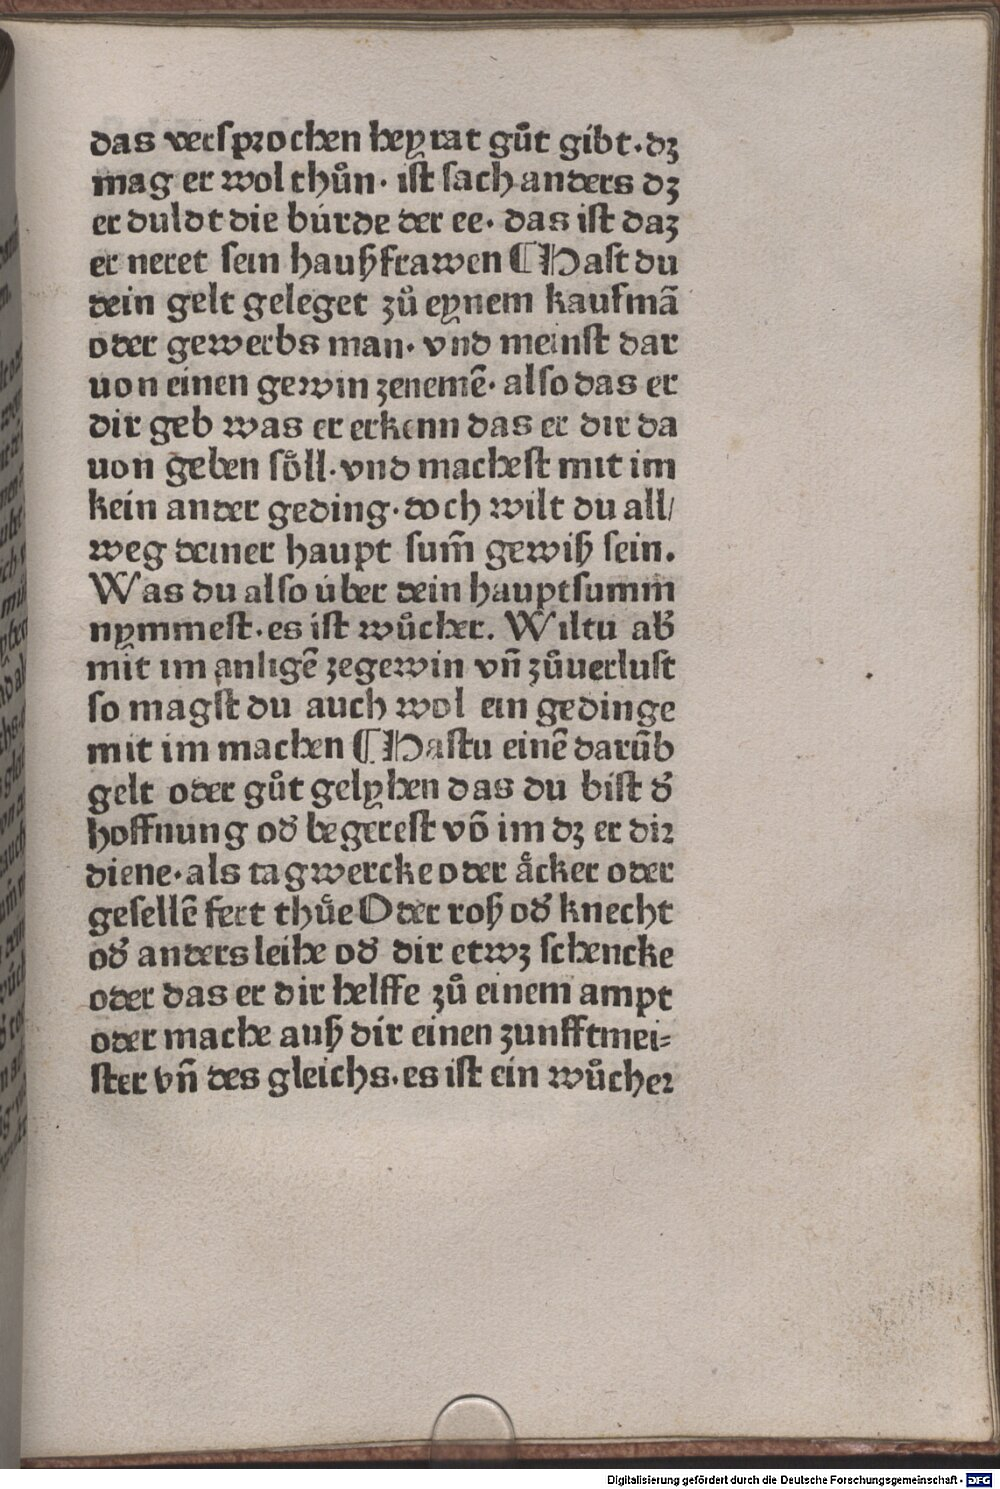 das versprochen heyrat gůt gibt·dʒ
mag er wol thůn· ist sach anders dʒ
er duldt die búrde der ee· das ist daʒ
er neret sein hauß frawen ¶Hast du
dein gelt geleget zů eynem kaufmā
oder gewerbs man· vnd meinst dar
uon einen gewin zenemē· also das er
dir geb was er erkenn das er dir da
uon geben sŏll·vnd machest mit im
kein ander geding·doch wilt du all/
weg deiner haupt sum̄ gewiß sein.
Was du also úber dein hauptsumm
nymmest·es ist wůcher. Wiltu ab̕
mit im anligē zegewin vn̄ zůuerlust
so magst du auch wol ein gedinge
mit im machen ¶Hastu einē darūb
gelt oder gůt gelyhen das du bist d̕
hoffnung od̕ begerest vō im dʒ er dir
diene·als tagwercke oder åcker oder
gesellē fert thůe Oder roß od̕ knecht
od̕ anders leihe od̕ dir etwʒ schencke
oder das er dir helffe zů einem ampt
oder mache auß dir einen zunfftmei=
ster vn̄ des gleichs·es ist ein wůcher
Digitalisierung gefördert durch die Deutsche Forschungsgemeinschaft - DFG